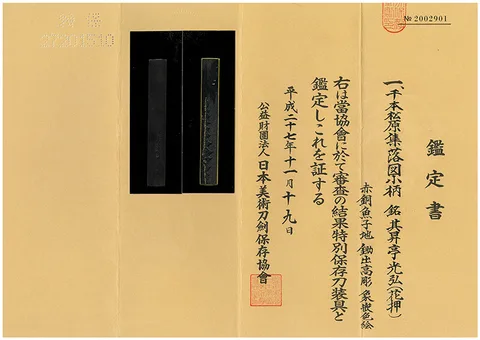 № 2002901
鑑定書
一、千本松原集落図小柄 銘 其昇亭光弘(花押)
赤銅魚子地 鋤出高彫 象嵌色絵
右は當協會に於て審査の結果特別保存刀装具と
鑑定しこれを証する
平成二十七年十一月十九日
公益財團法人 日本美術刀劍保存協會